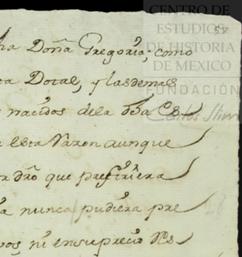 CENTRO DE
ESTUDIOS
DE HISTORIA
DE MEXICO
FUNDACIÓN
Carlos Slim
ha Doña Gregoria, como
Dotal, y las demas
nacidos de la
esta Varon aunque
dro que prefiriera
a nunca pudiera pre
ni en su precio